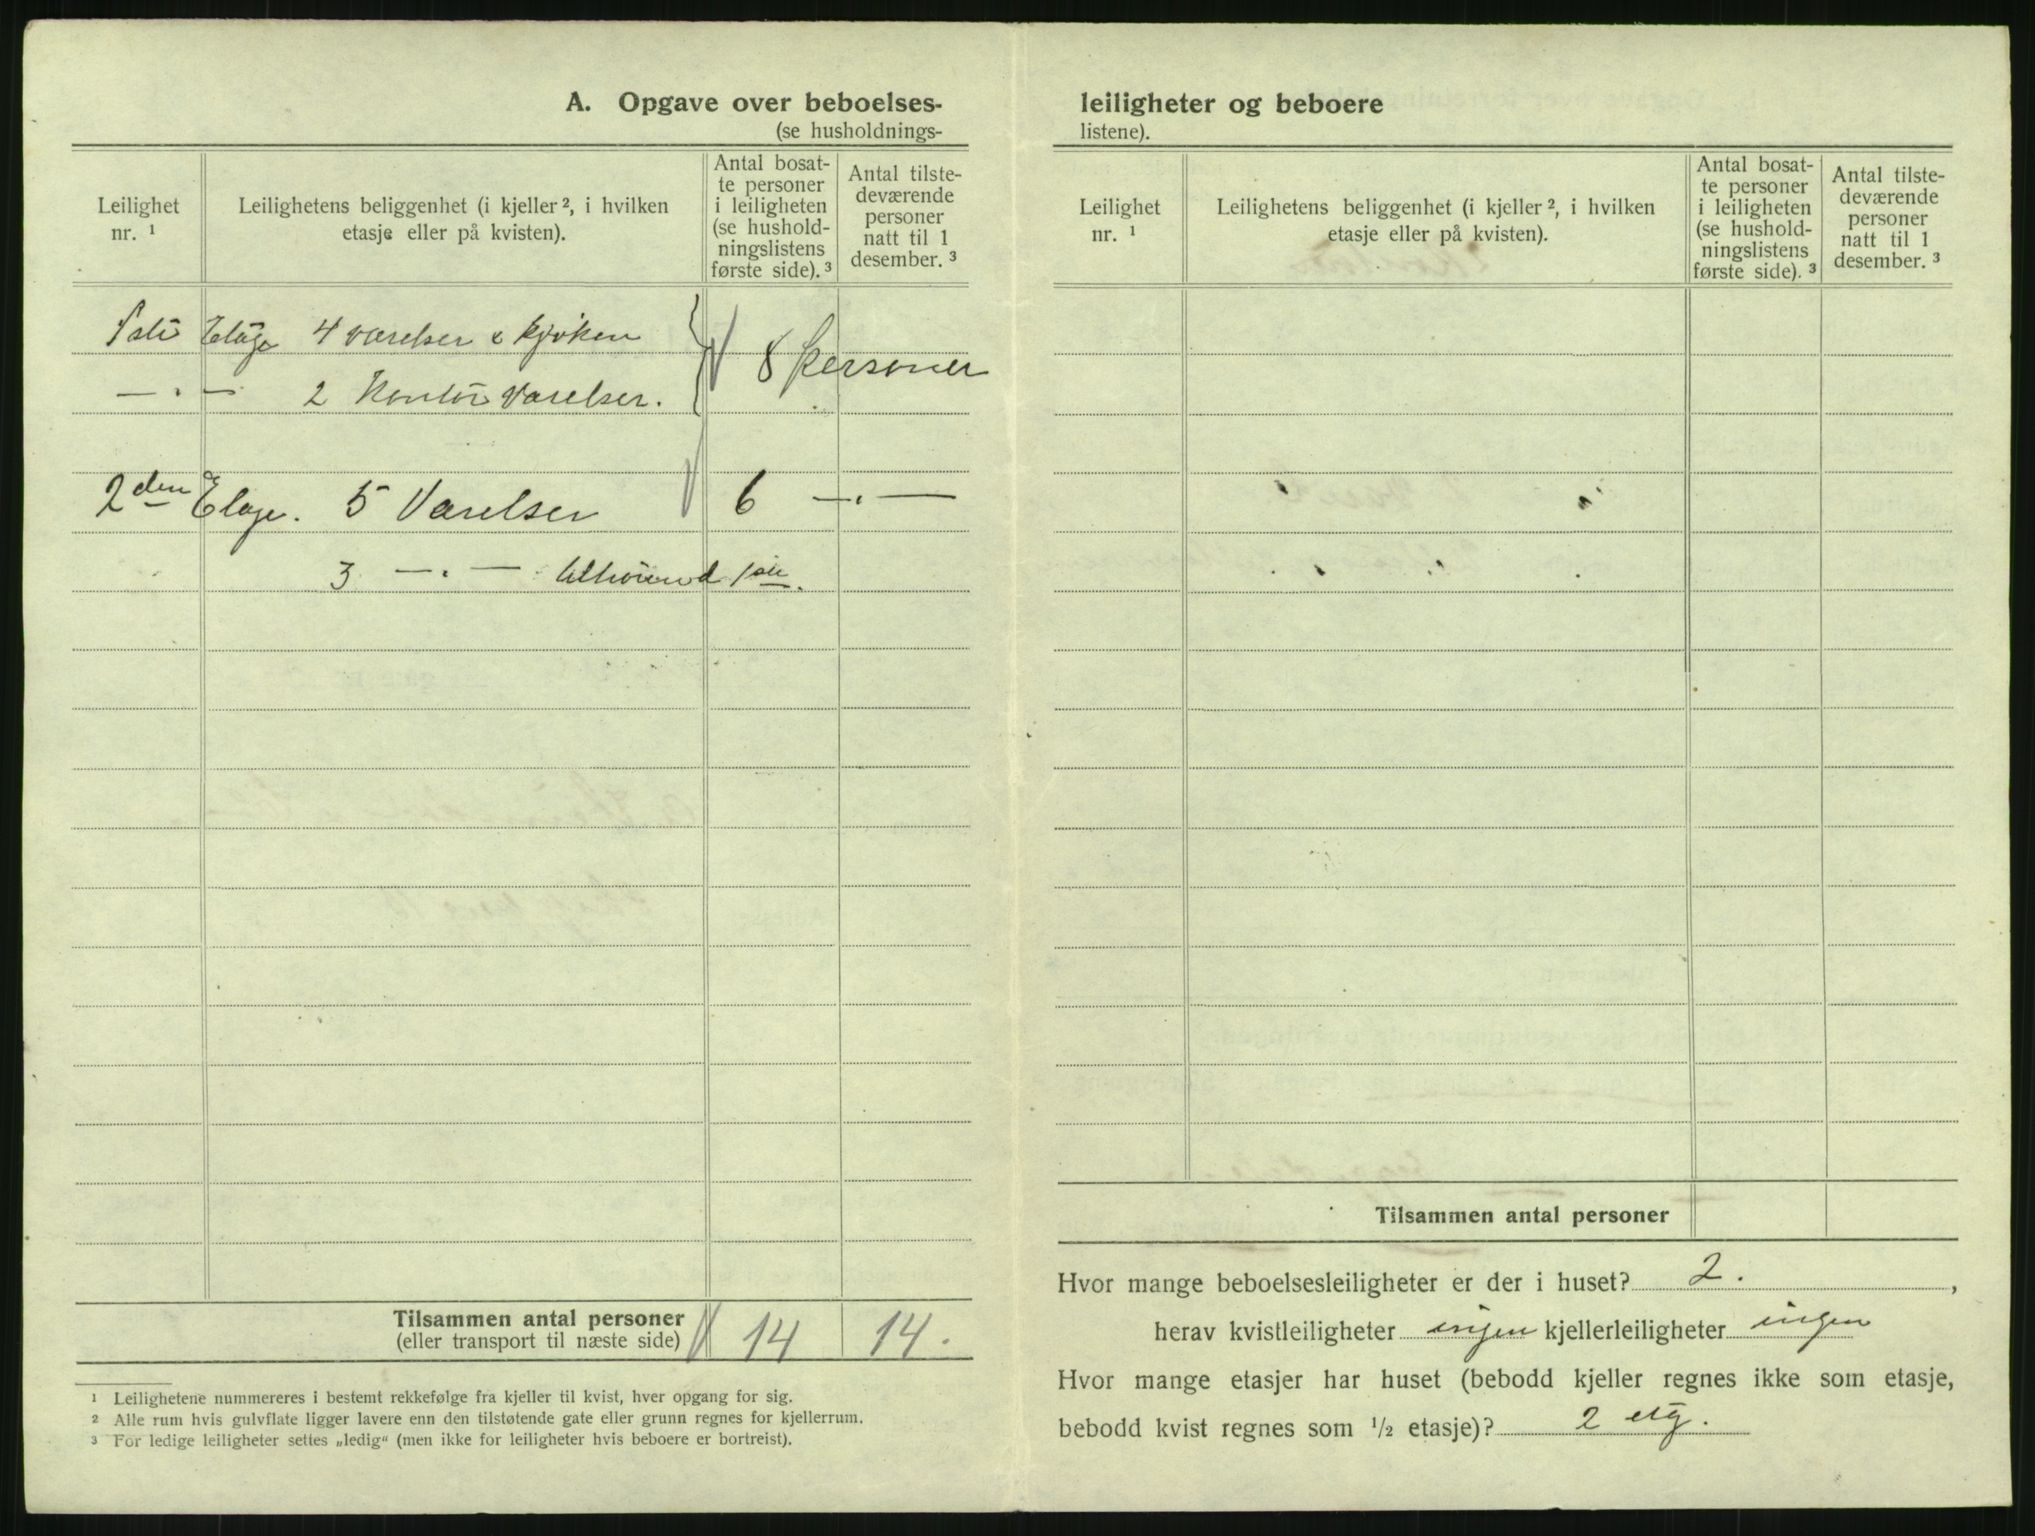 A. Opgave over beboelses-
(se husholdnings-
Leilighet nr. ¹
Leilighetens beliggenhet (i kjeller ², i hvilken etasje eller på kvisten).
Antal bosat-
te personer
i leiligheten
(se hushold-
ningslistens
første side). ³
Antal tilste-
deværende
personer
natt til 1
desember. ³
1ste Etage 4 værelser & kjøken
8 personer
— . — 2 Kontor værelser.
2den Etage. 5 Værelser 6 — . —
3 — . —
Tilsammen antal personer 14 14.
(eller transport til næste side)
¹ Leilighetene nummereres i bestemt rekkefølge fra kjeller til kvist, hver opgang for sig.
² Alle rum hvis gulvflate ligger lavere enn den tilstøtende gate eller grunn regnes for kjellerrum.
³ For ledige leiligheter settes „ledig“ (men ikke for leiligheter hvis beboere er bortreist).
leiligheter og beboere
listene).
Leilighet nr. ¹
Leilighetens beliggenhet (i kjeller ², i hvilken etasje eller på kvisten).
Antal bosat-
te personer
i leiligheten
(se hushold-
ningslistens
første side). ³
Antal tilste-
deværende
personer
natt til 1
desember. ³
Tilsammen antal personer
Hvor mange beboelsesleiligheter er der i huset? 2. ,
herav kvistleiligheter ingen kjellerleiligheter ingen
Hvor mange etasjer har huset (bebodd kjeller regnes ikke som etasje,
bebodd kvist regnes som ½ etasje)? 2 etg.